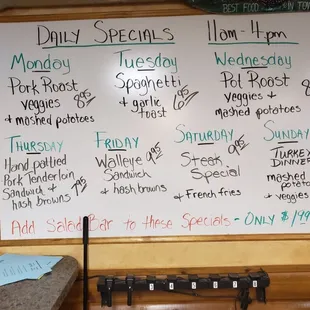 BEST FOOD IN TOWN
DAILY SPECIALS 11am - 4pm
Monday
Pork Roast
veggies 8.95
+ mashed potatoes
Tuesday
Spaghetti
+ garlic 6.95
toast
Wednesday
Pot Roast
veggies +
+ mashed potatoes
THURSDAY
Hand pattied
Pork Tenderloin
Sandwich + 7.95
hash browns
FRIDAY
Walleye 9.95
Sandwich
+ hash browns
SATURDAY
Steak 9.95
Special
+ French fries
SUNDAY
TURKEY
DINNER
mashed
+ veggies
Add Salad Bar to these Specials - ONLY $1.99